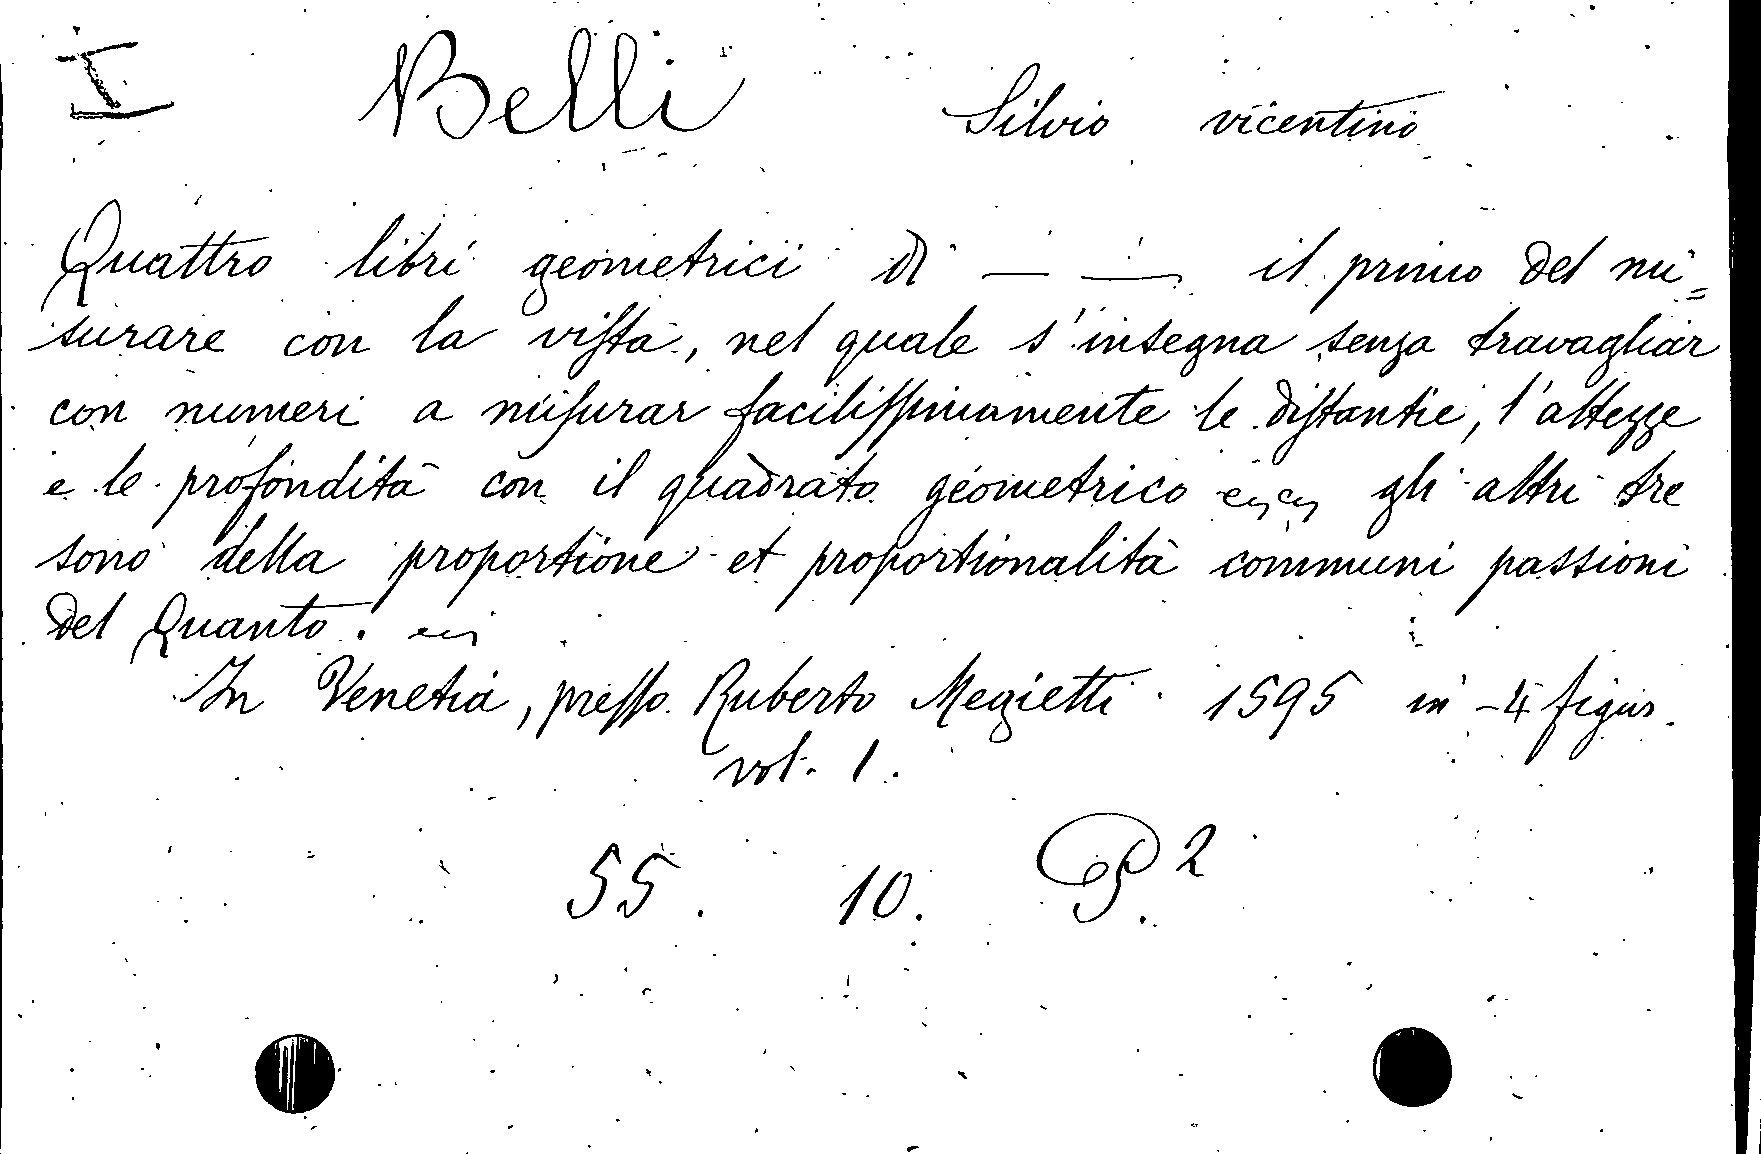 I Belli Silvio vicentino
Quattro libri geometrici di — — il primo del mi=
surare con la viſta, nel quale s'insegna senza travagliar
con numeri a miſurar faciliſſimamente le diſtantie, l'altezze
e le profondità con il quadrato geometrico gli altri tre
sono della proportione et proportionalità communi passioni
del Quanto.
In Venetia, preſſo Ruberto Megietti 1595 in -4 figur.
vol. 1.
55. 10. P.2